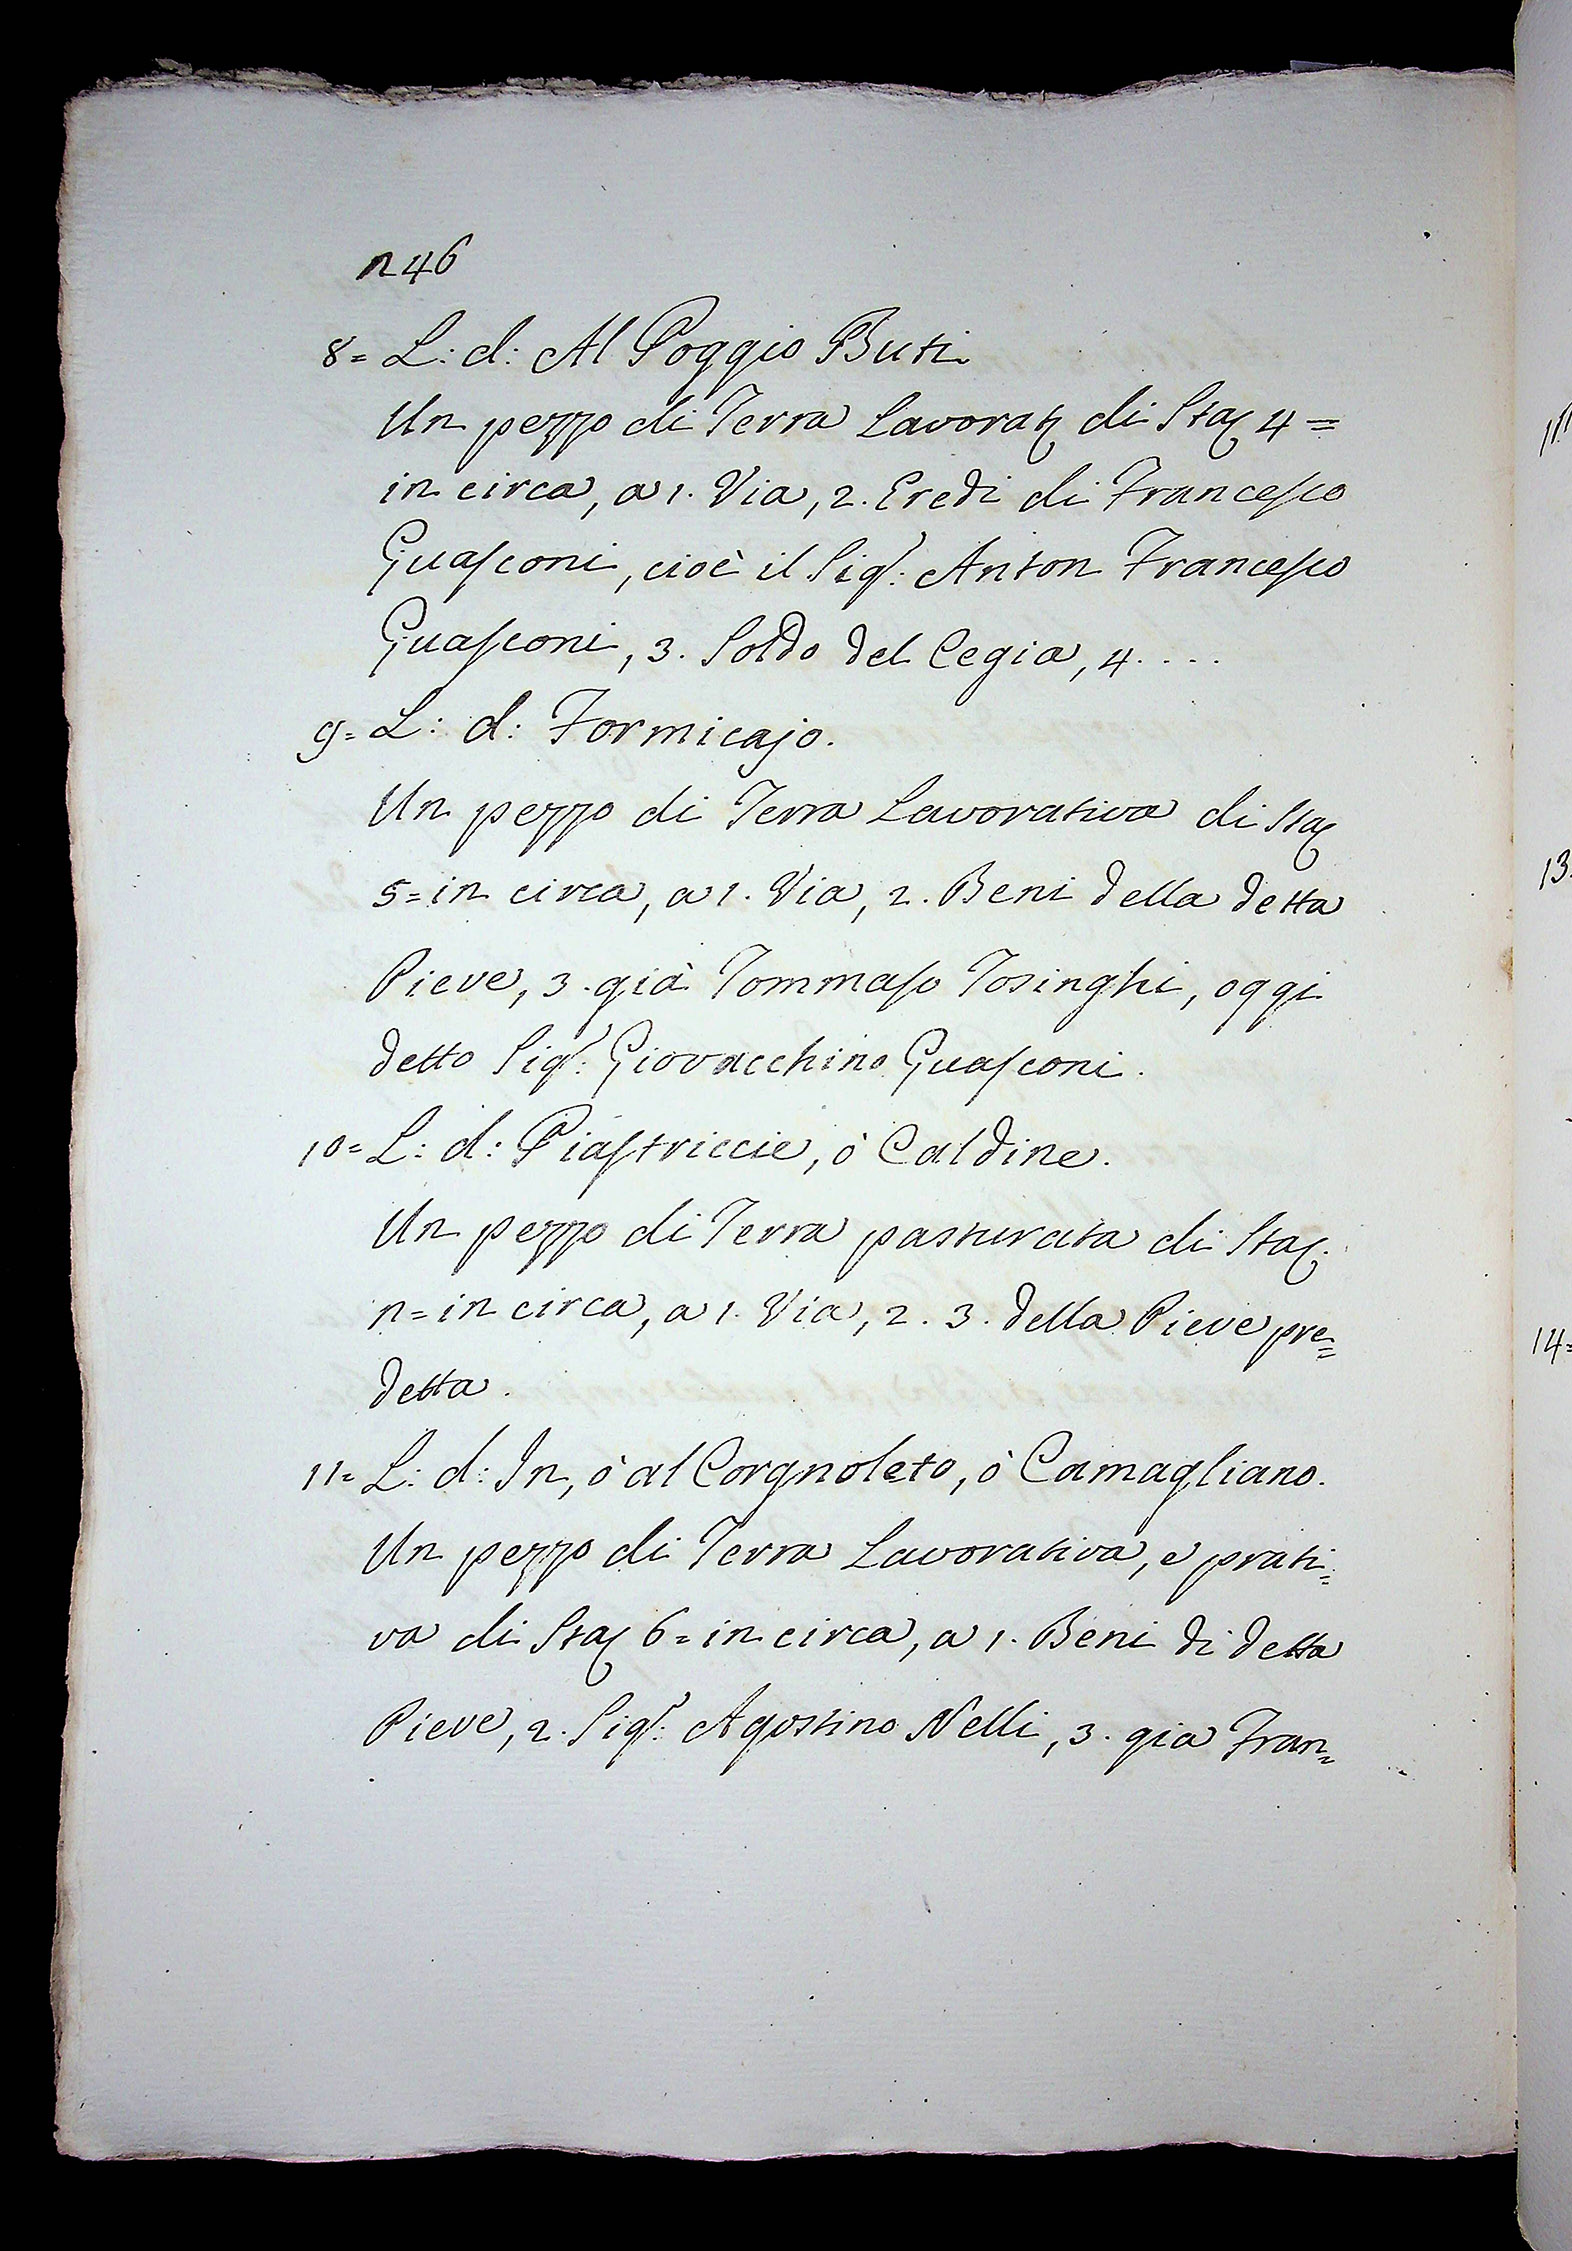 n 46
8= L: d: Al Poggio Buti
Un pezzo di Terra Lavorat: di Sta: 4=
in circa, a 1. Via, 2. Eredi di Francesco
Guasconi, cioè il Sig.r: Anton Francesco
Guasconi, 3. Soldo del Cegia, 4. . . .
9= L: d: Formicajo.
Un pezzo di Terra Lavorativa di Sta:
5= in circa, a 1. Via, 2. Beni della detta
Pieve, 3. già Tommaso Tosinghi, oggi
detto Sig.r: Giovacchino Guasconi.
10= L: d: Piastriccie, ò Caldine.
Un pezzo di Terra pasturata di Sta:
n= in circa, a 1. Via, 2. 3. della Pieve pre=
detta.
11= L: d: In, ò al Corgnoleto, ò Camagliano.
Un pezzo di Terra Lavorativa, e prati=
va di Sta: 6= in circa, a 1. Beni di detta
Pieve, 2. Sig.r: Agostino Nelli, 3. gia Fran=
13.
14=